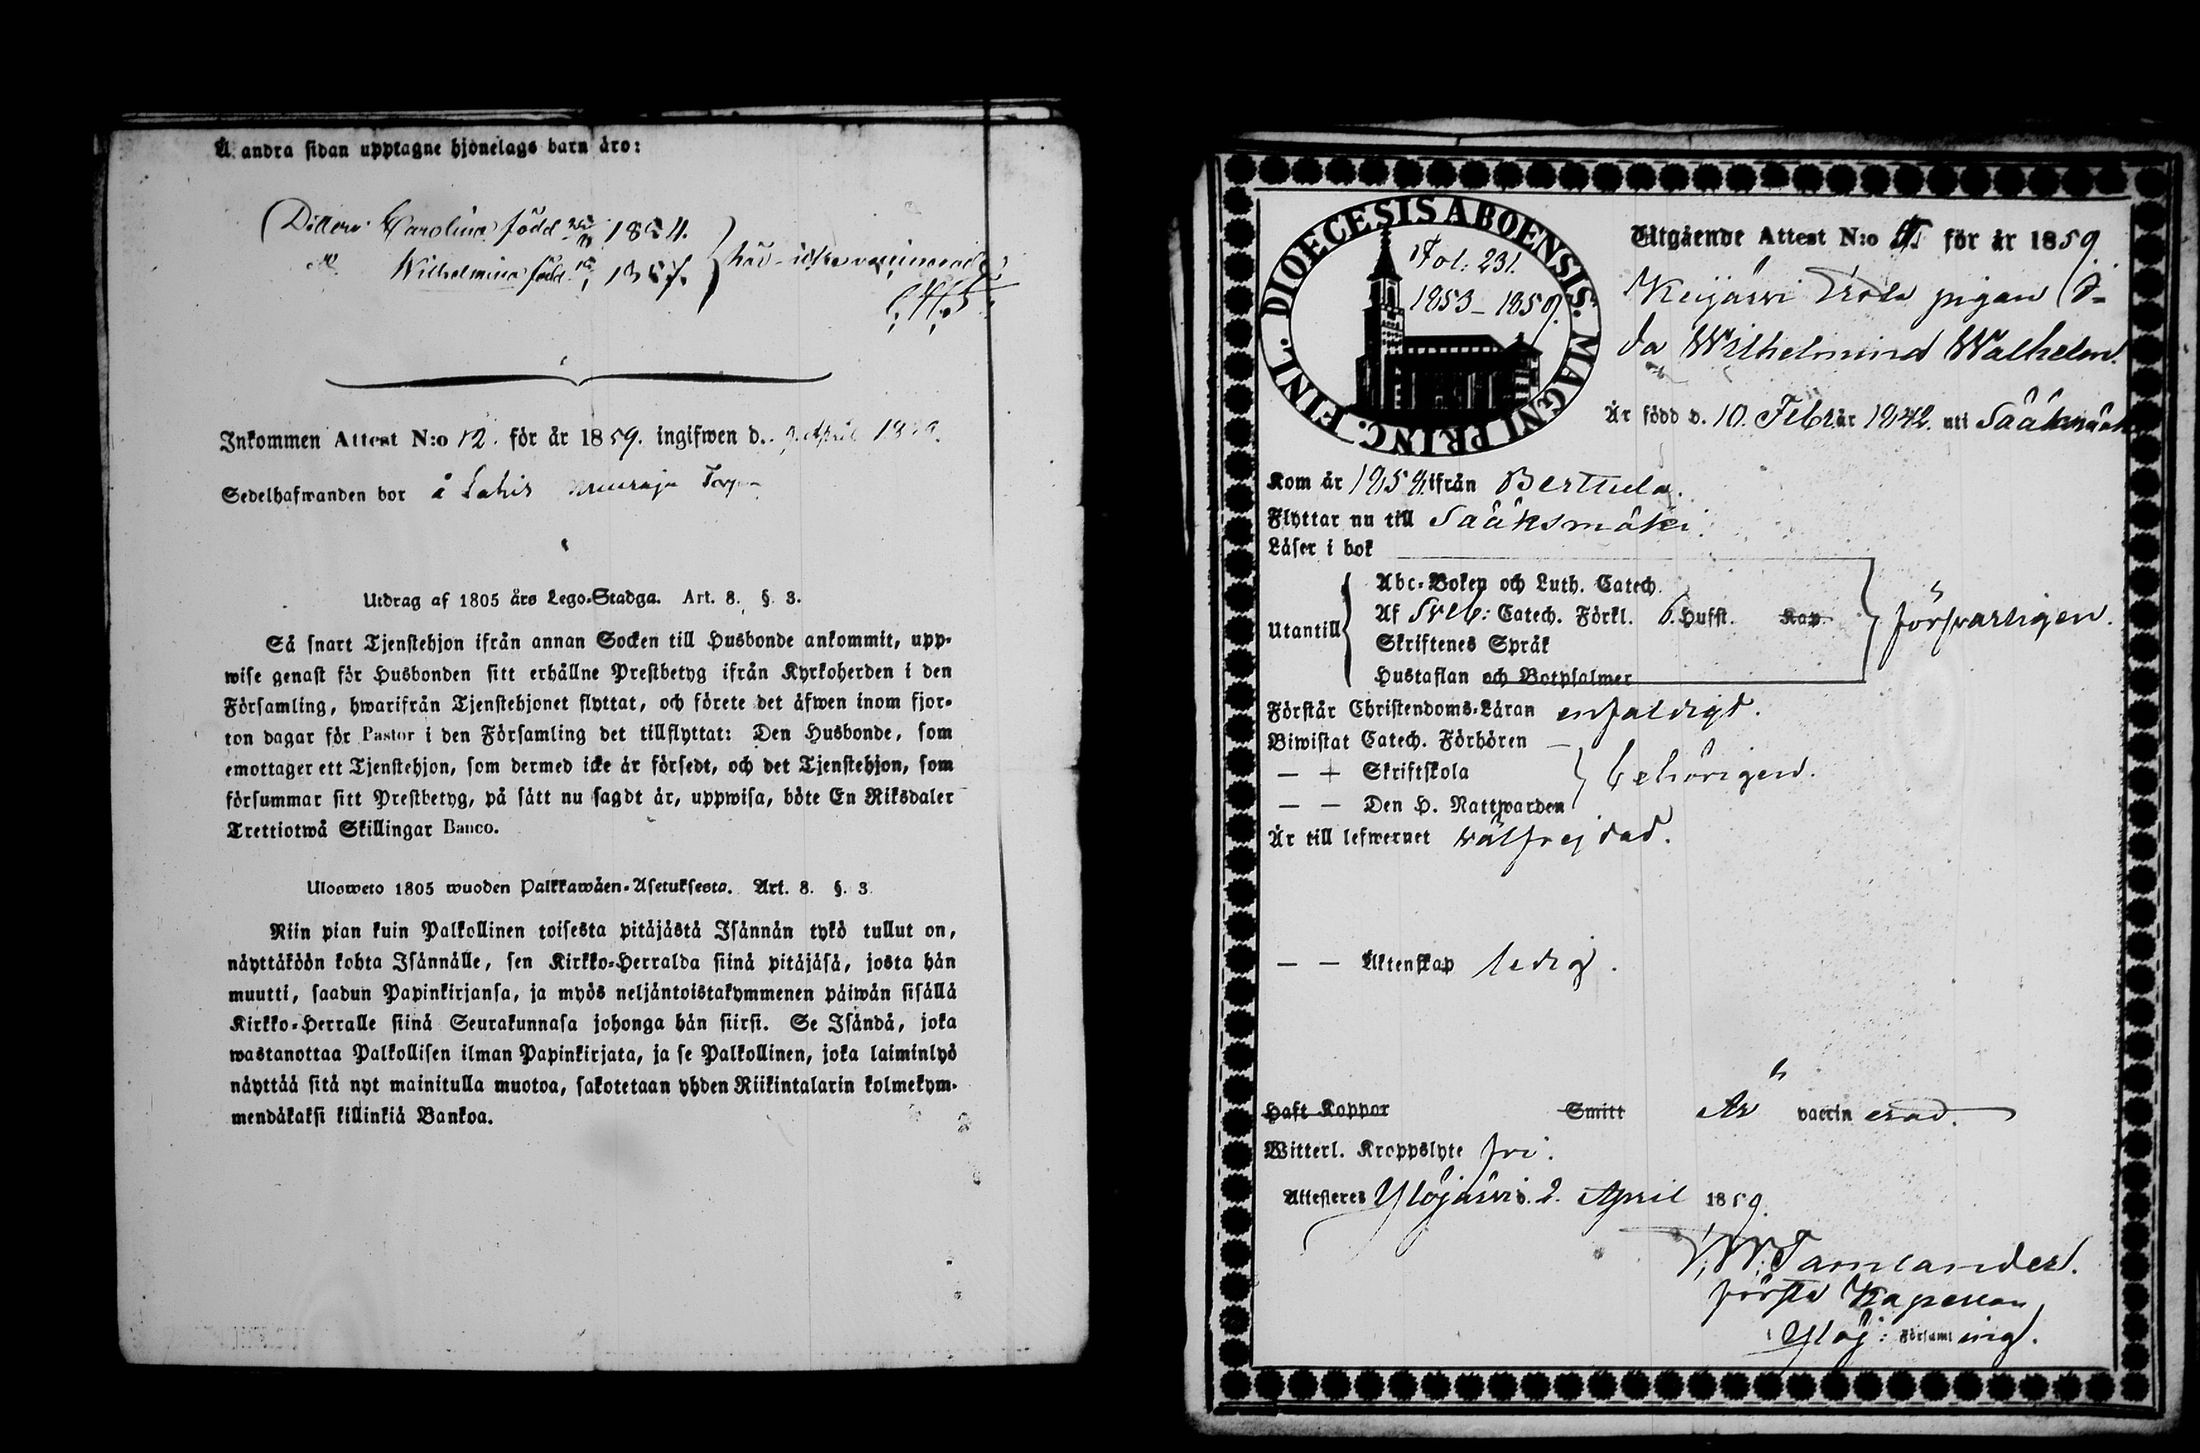 Å andra sidan upptagne hjonelags barn äro:
Dotter Carolina född 1854.
Wilhelmina född 1857.
Inkommen Attest N:o 12. för år 1859. ingifwen d. April
Sedelhafwanden bor å Lahis
Utdrag af 1805 års Lego-Stadga. Art. 8. §. 3.
Så snart Tjenstehjon ifrån annan Socken till Husbonde ankommit, upp-
wise genast för Husbonden sitt erhållne Prestbetyg ifrån Kyrkoherden i den
Församling, hwarifrån Tjenstehjonet flyttat, och förete det äfwen inom fjor-
ton dagar för Pastor i den Församling det tillflyttat: Den Husbonde, som
emottager ett Tjenstehjon, som dermed icke är försedt, och det Tjenstehjon, som
försummar sitt Prestbetyg, på sätt nu sagdt är, uppwisa, böte En Riksdaler
Trettiotwå Skillingar Banco.
Ulosweto 1805 wuoden Palkkawäen-Asetuksesta. Art. 8. §. 3
Niin pian kuin Palkollinen toisesta pitäjästä Isännän tykö tullut on,
näyttäköön kohta Isännälle, sen Kirkko-Herralda siinä pitäjäsä, josta hän
muutti, saadun Papinkirjansa, ja myös neljäntoistakymmenen päiwän sisällä
Kirkko-Herralle siinä Seurakunnasa johonga hän siirsi. Se Isändä, joka
wastanottaa Palkollisen ilman Papinkirjata, ja se Palkollinen, joka laiminlyö
näyttää sitä nyt mainitulla muotoa, sakotetaan yhden Riikintalarin kolmekym-
mendäkaksi killinkiä Bankoa.
DIOECESIS ABOENSIS. MAGNI PRINC. FINL.
Fol: 231.
1853-1859.
Utgående Attest N:o för år 1859.
Keijärvi pigan
da Wilhelmina
Är född d. 10. Febr är 1842. uti Sääksmäki
Kom år 1858. ifrån Berttula.
Flyttar nu till Sääksmäki.
Läser i bok
Utantill
Abc-Boken och Luth. Catech.
Af Sveb: Catech. Förkl. 6. Hufst. Kap.
Skriftenes Språk
Hustaflan och Botpsalmer
försvarligen.
Förstår Christendoms-Läran enfaldigt.
Biwistat Catech. Förhören —
— + Skriftskola
— — Den H. Nattwarden
behörigen.
Är till lefwernet wälfrejdad.
— — Äktenskap ledig.
Haft Koppor Smitt Är vaccinerad.
Witterl. Kroppslyte fri.
Attesteres Ylöjärvi d. 2. April 1859.
Tamlander.
förste Kapellan
i Ylöj: Församling.